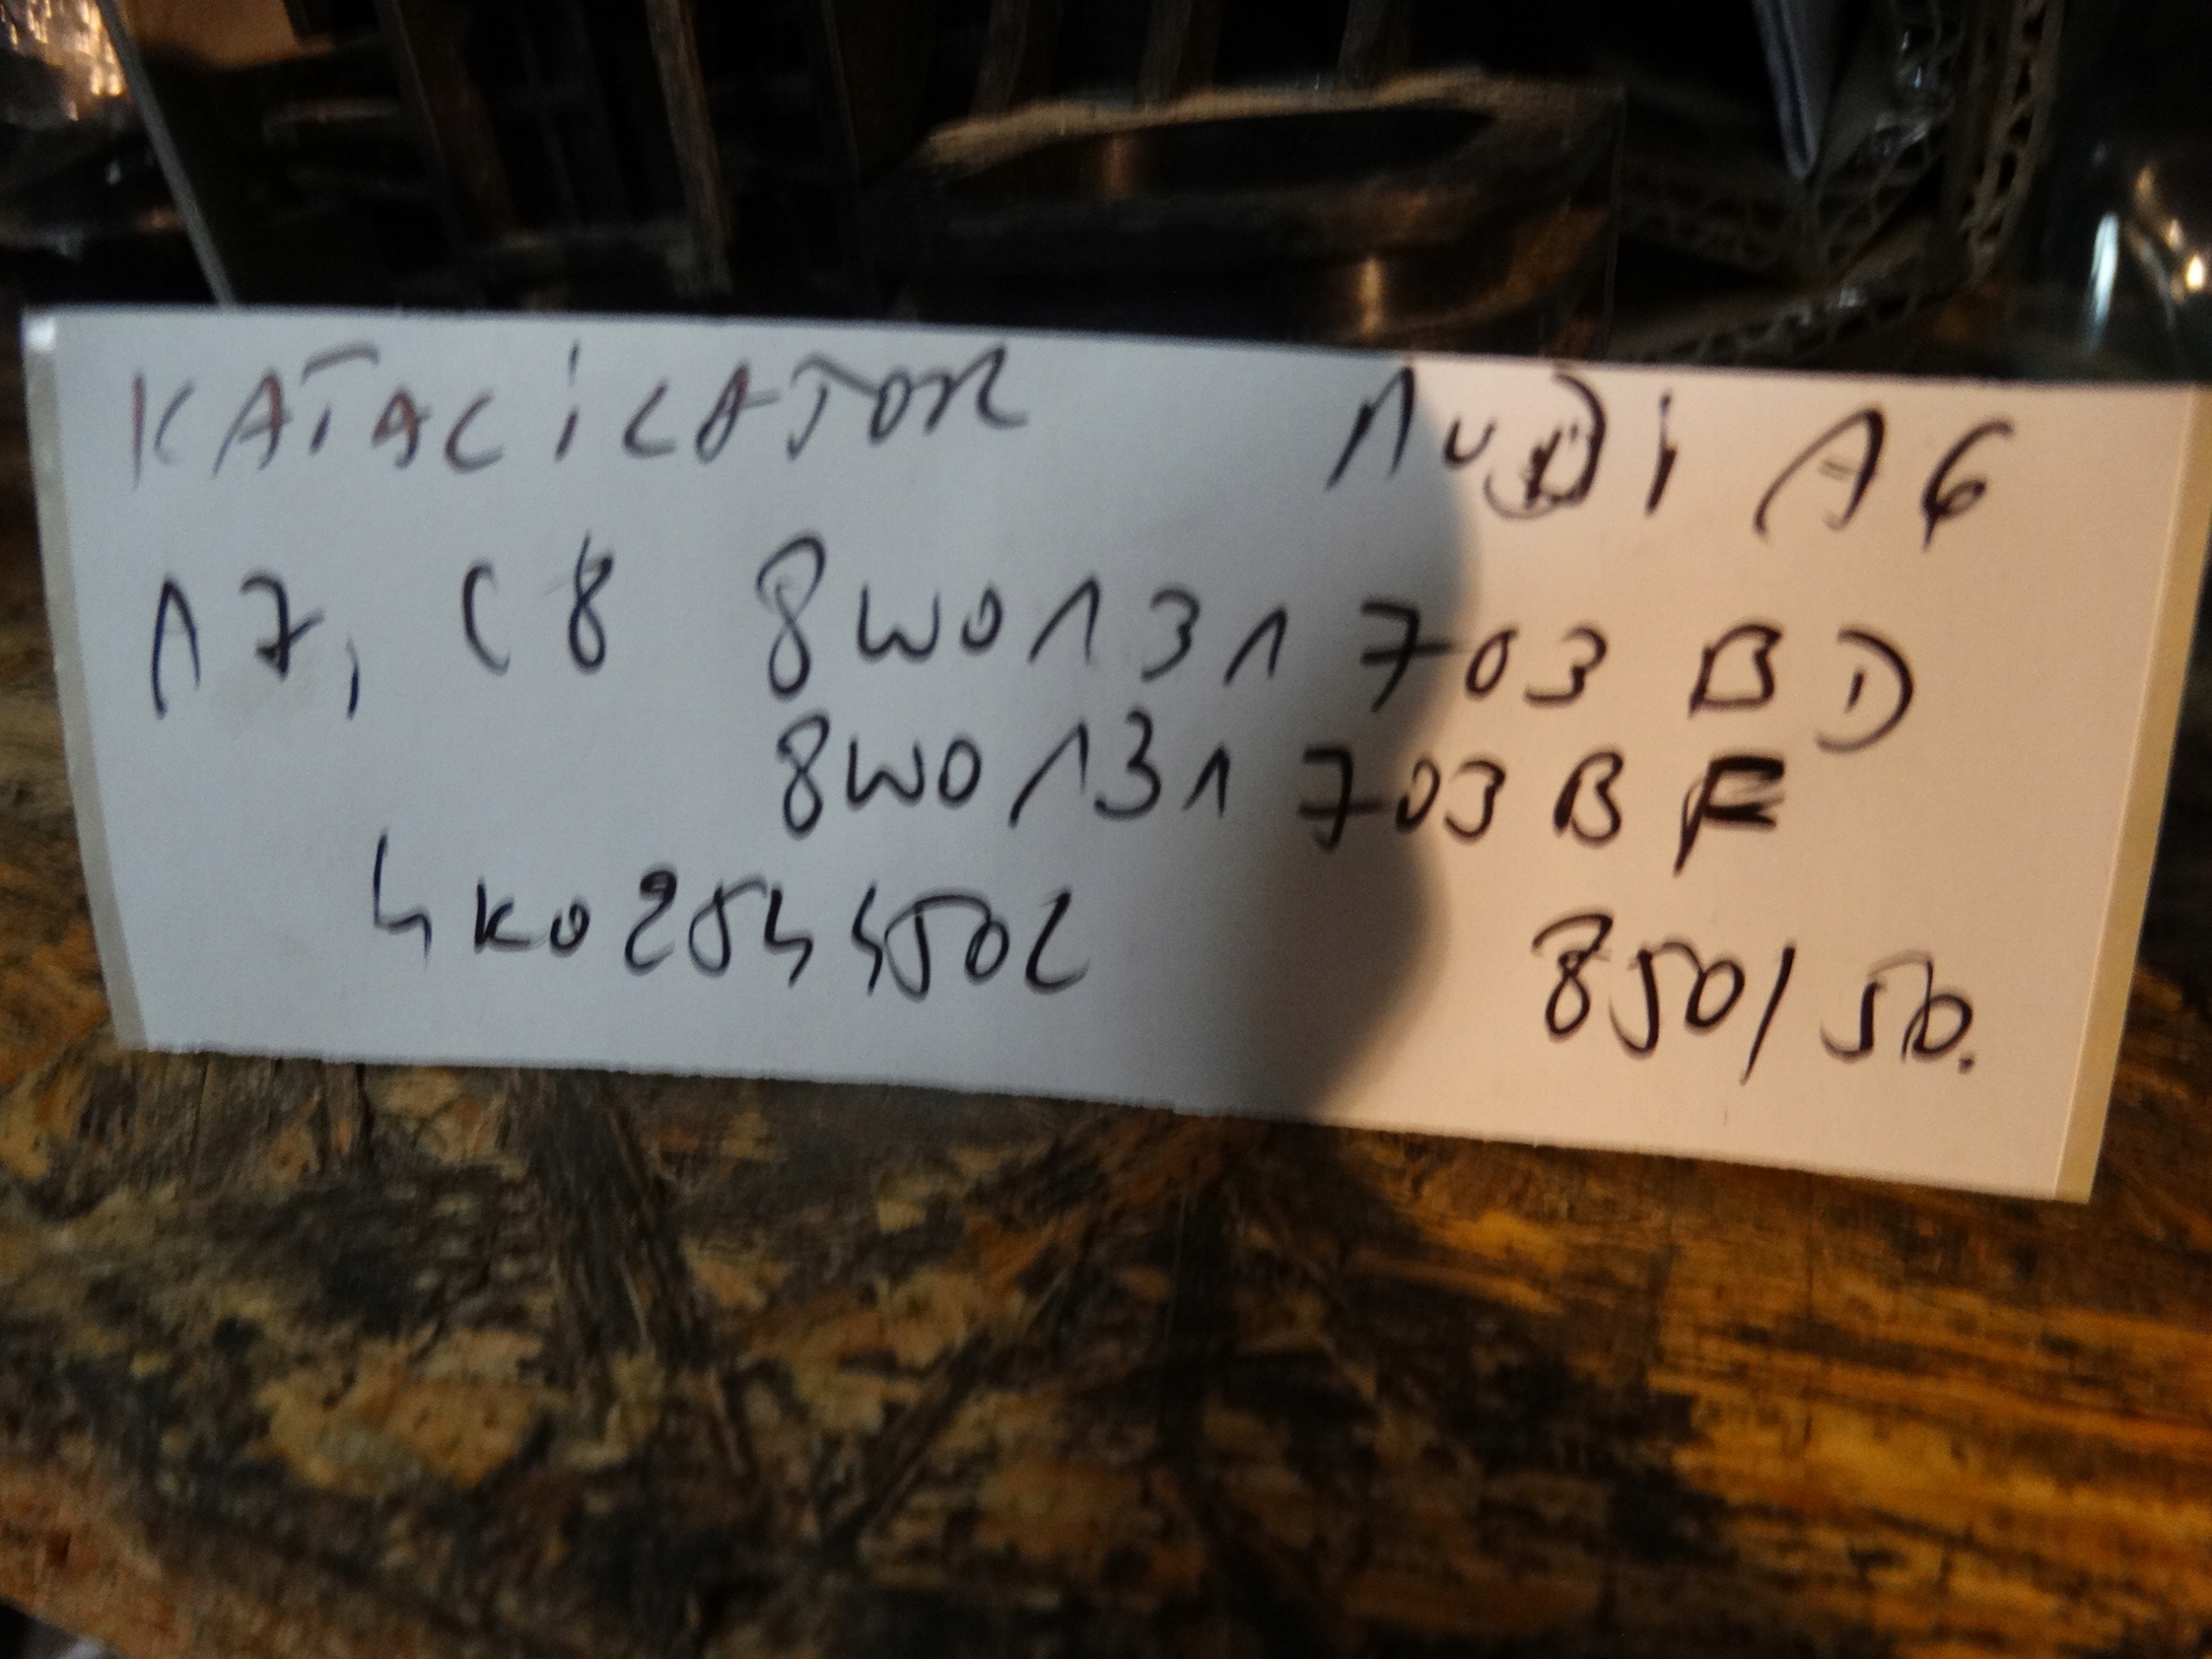 KATACiCATOR AUDi A6
A7, C8 8W0131703 BD
8W0131703 BF
4K0254450L
850/50.